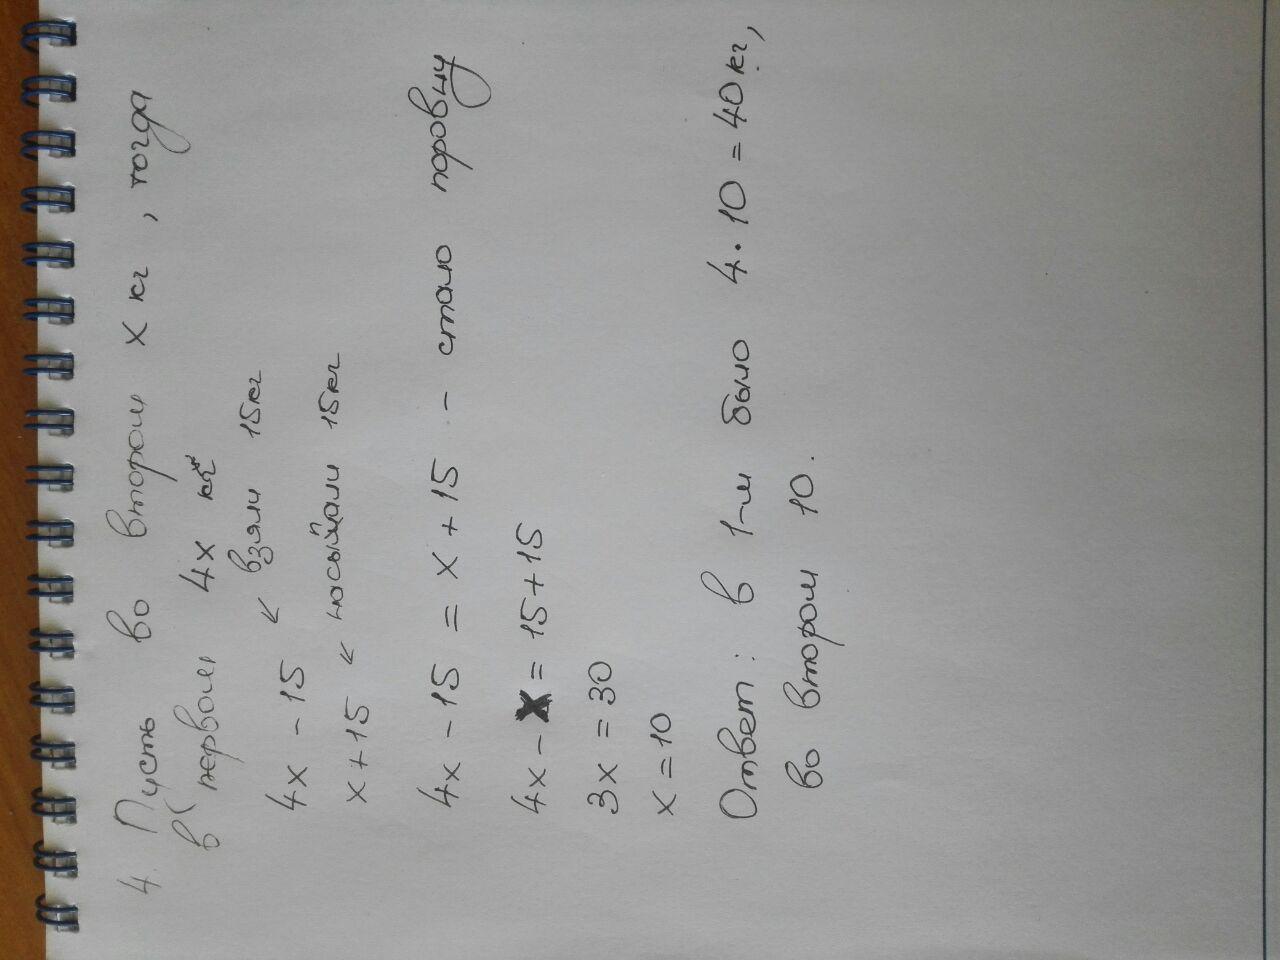 4. Пусть во втором x кг, тогда
в первом 4x кг
4x - 15 ← взяли 15кг
x + 15 ← насыпали 15кг
4x - 15 = x + 15 - стало поровну
4x - x = 15 + 15
3x = 30
x = 10
Ответ: в 1-м было 4 · 10 = 40 кг,
во втором 10.